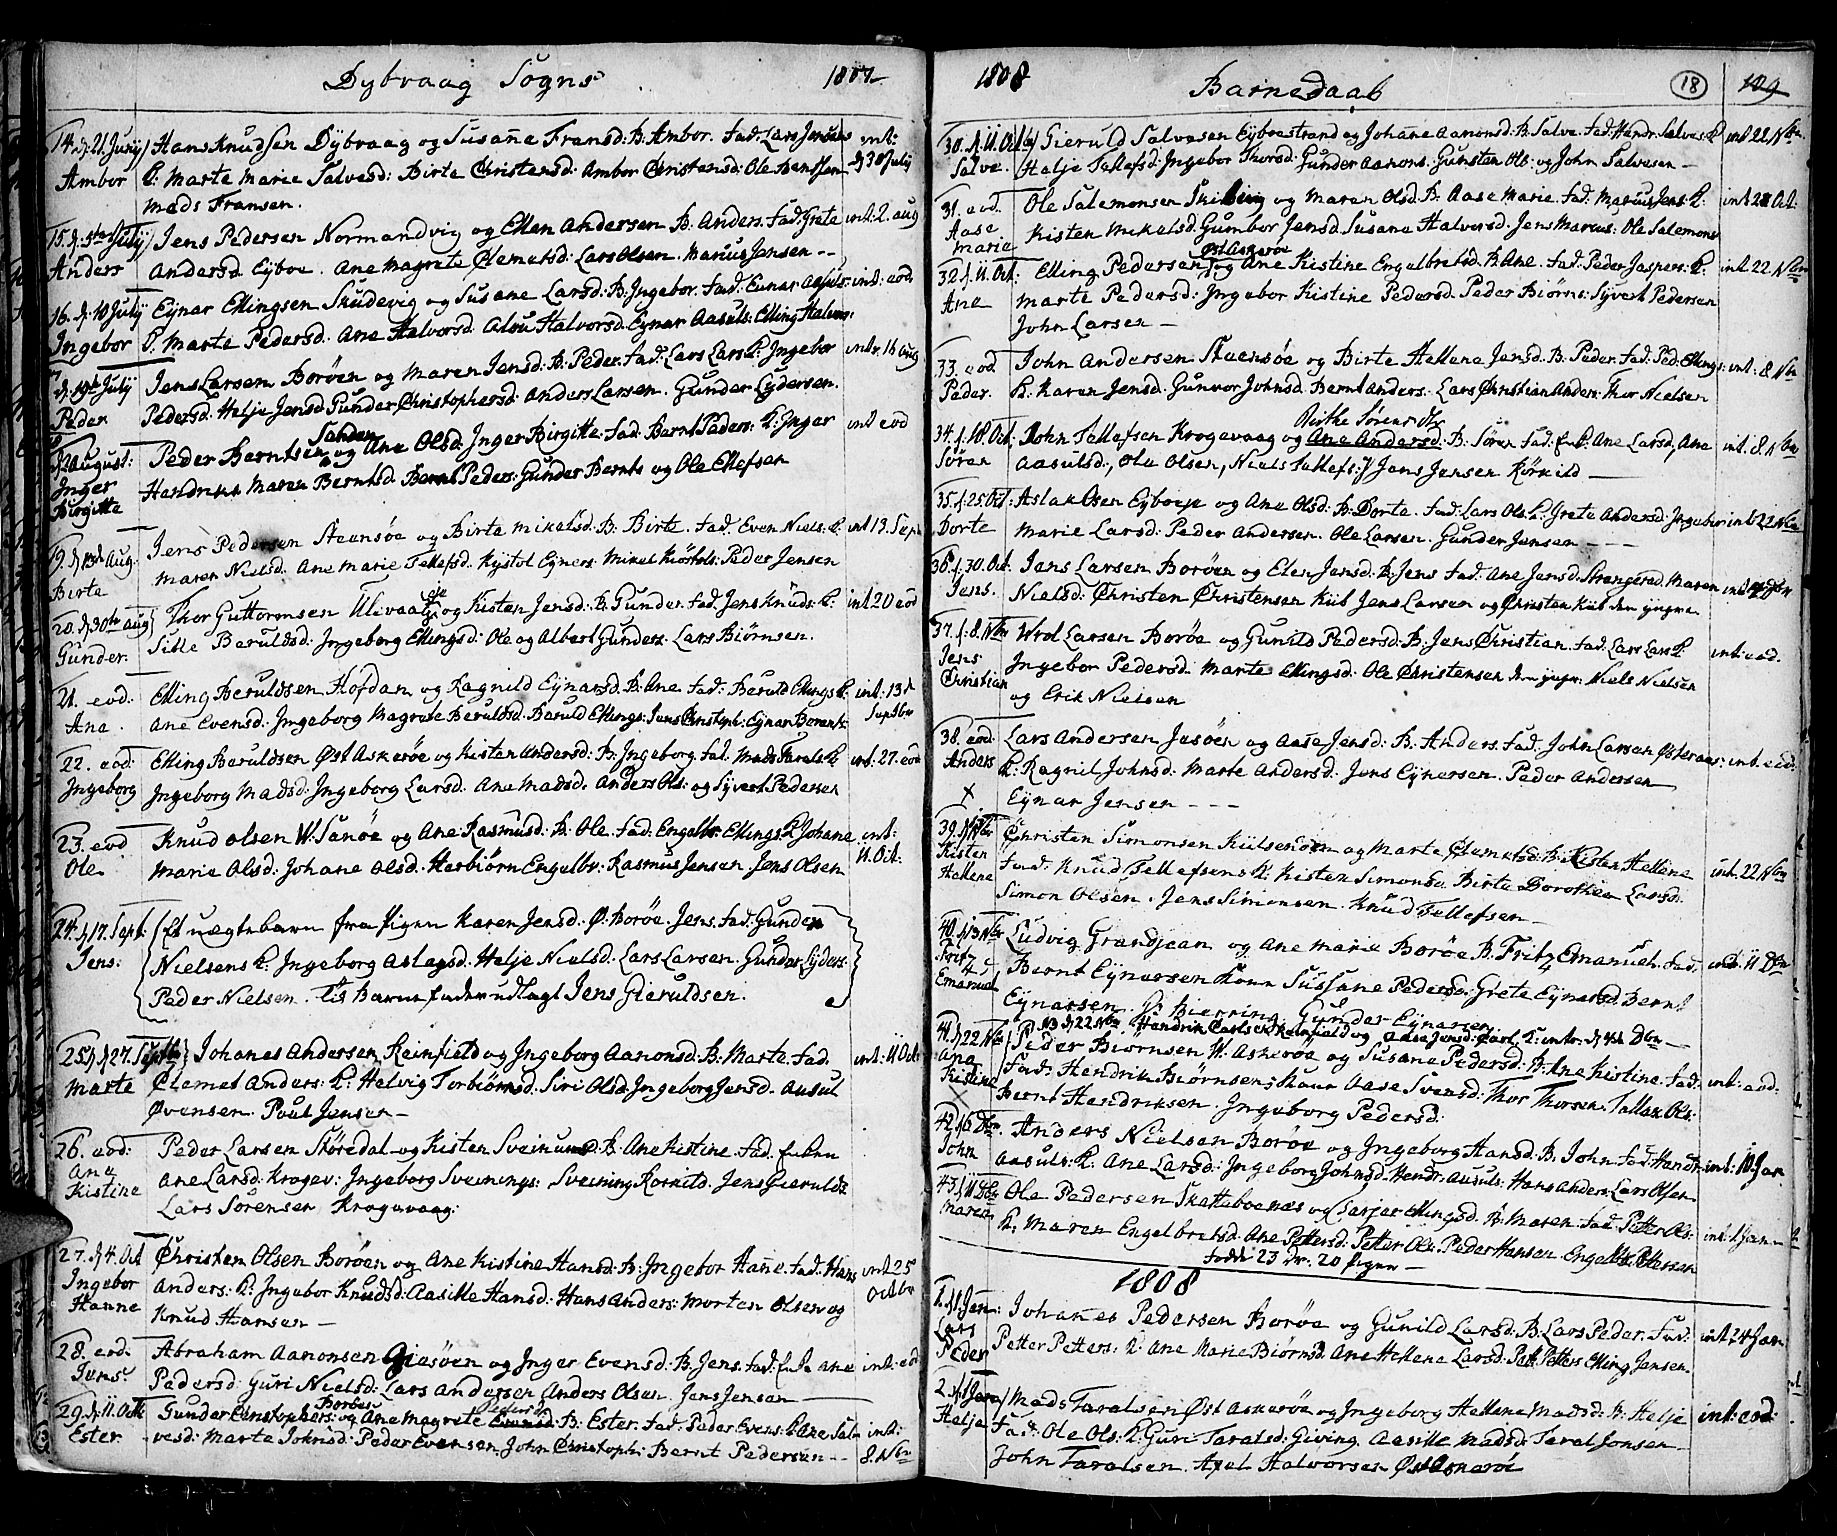 Dybvaag Sogns 1807
14. d. 21 Juny Hans Knudsen Dybvaag og Susane Fransd: B. Ambor. Fad. Lars Jensens int:
Ambor K: Marte Marie Salvesd: Birte Christensd: Ambor Christensd: Ole Bentsen d. 30 July
Mads Fransen.
15. d. 5te July Jens Pedersen Normandvig og Ellen Andersen B. Anders. Fad. Grete int: 2. aug
Anders Andersd. Eyboe. Ane Magrete Clemetsd: Lars Olsen. Marius Jensen --
16. d. 10 July Eynar Ellingsen Skudevig og Susane Larsd: B. Ingebor. Fad. Einar Aasuls: int: eod
Ingebor K. Marte Pedersd. Ane Halvorsd. Alou Halvorsd. Eynar Aasuls: Elling Halvors:
d. 19de July Jens Larsen Borøen og Maren Jensd: B. Peder. Fad. Lars Lars K: Ingebor int. 16 aug
Peder Pedersd. Helje Jensd. Gunder Christophersd: Anders Larsen. Gunder Lydersen.
d. 2 August: Peder Berntsen Sanden og Ane Olsd. Inger Birgitte. Fad. Bernt Peders: K: Inger int eod
Inger Hendrikke Maren Berntsd. Bernt Peders: Gunder Bernts og Ole Ellefsen
Birgitte
19. d. 13de Aug. Jens Pedersen Steensøe og Birte Mikalsd: B. Birte. Fad. Even Niels: K. int 13. Sept
Birte Maren Nielsd. Ane Marie Tellefsd. Kystol Eyners. Mikel Kiørkels: Peder Jensen
20. d. 30te aug Thor Guttormsen Ulevaag og Kisten Jensd: B. Gunder. Fad. Jens Knuds: K: int 20 eod
Gunder. Sille Beruldsd: Ingeborg Ellingsd: Ole og Albert Gunders. Lars Biørnsen.
21. eod: Elling Beruldsen Hofdam og Ragnild Eynarsd. B. Ane Fad: Beruld Ellings K: int: 13de
Ana. Ane Evensd: Ingeborg Magrete Beruldsd. Baruld Ellings: Jens Christoph: Eynar Berent: Septbr
22. eod: Elling Beruldsen Øst Askerøe og Kisten Andersd: B. Ingeborg. Fad. Mads Tarals K int. 27. eod
Ingeborg Ingeborg Madsd. Ingeborg Larsd. Ane Madsd. Anders Ols: og Syvert Pedersen
23. eod Knud Olsen W. Sanøe og Ane Rasmusd: B. Ole. Fad. Engelbr: Ellings K Johane int:
Ole. Marie Olsd. Johane Olsd. Herbiørn Engelbr. Rasmus Jensen Jens Olsen 11. Oct:
24. d. 17. Sept: Et uægte barn fra Pigen Karen Jensd. Ø. Borøe. Jens. Fad: Gunder
Jens: Nielsens K. Ingeborg Aslagsd. Helje Nielsd. Lars Larsen. Gunder Lyders:
Peder Nielsen. Til Barnefader udlagt Jens Gieruldsen.
25. d. 27. Septbr Johanes Andersen Reinfield og Ingeborg Aanonsd: B. Marte. Fad int: 11 Oct
Marte Clemet Anders: K: Helvig Torbiørnsd. Siri Olsd Ingeborg Jensd. Aasul
Øvensen. Poul Jensen -
26. eod: Peder Larsen Skøredal og Kisten Sveinung: B. Ane Kistine. Fad.
Ane Ane Larsd. Krogev: Ingeborg Sveinings: Sveining Kornild. Jens Gierulds
Kistine Lars Sørensen Krogevaag:
27. d. 4. Oct Christen Olsen Borøen og Ane Kistine Hansd: B. Ingebor Hane. Fad. Hans int 25
Ingebor Anders: K: Ingebor Knudsd. Aasille Hansd: Hans Anders: Morten Olsen og Octbr
Hanne Knud Hansen -
28. eod. Abraham Aanonsen Giesøen og Inger Evensd: B. Jens. Fad: Ane int: eod
Jens Pedersd. Guri Nielsd: Lars Andersen Anders Olsen. Jens Jensen
29. d. 11. Oct Gunder Christophers: Borøe og Ane Magrete Pedersd: B: Ester. Fad: Peder Evens: K: Ane Sal- int:
Ester vesd: Marte Johnsd: Peder Evensen John Christoph: Bernt Pedersen -- 8. Nbr
1808 Barnedaab 18 109
30. d. 11. Oct Gieruld Salvesen Eyboestrand og Johane Aanonsd: B. Salve. Fad: Hendr. Salves: K int 22. Nbr
Salve. Helje Tellefsd: Ingebor Thorsd: Gunder Aanons. Gunsten Ols: og John Salvesen -
31. eod. Ole Salemonsen og Maren Olsd. B. Aase Marie. Fad. Marius Jens: K. int 28 Oct:
Aase Kisten Mikalsd: Gumbor Jensd. Susane Halvorsd. Jens Marcus: Ole Salemons
Marie
32. d. 11. Oct: Elling Pedersen Øst Askerøe og Ane Kistine Engelbretsd. B. Ane. Fad. Peder Jaspers: K: int 22. Nbr
Ana Marte Pedersd: Ingebor Kistine Pedersd. Peder Biørns: Syvert Pedersen
John Larsen -
33. eod John Andersen Skuensøe og Birte Hellene Jensd: B. Peder. Fad. Ped: Ellings: int: 8. Nbr
Peder. K. Karen Jensd: Gunvor Johnsd. Bernt Anders: Lars Christian Anders: Thor Nielsen
Birthe Sørensdr.
34. d. 18. Oct: John Tellefsen Krogevaag og Ane Andersd. B: Søren Fad: K. Ane Larsd, Ane int. 8. Nbr
Søren Aasulsd., Ole Olsen, Niels Tellefs: Jens Jensen Kørkild -
35. d. 25 Oct: Aslak Olsen Eyboeje og Ane Olsd: B. Dorte. Fad: Lars Ols: K. Grete Andersd. Ingebor int 22 Nbr
Dorte Marie Larsd: Peder Andersen. Ole Larsen. Gunder Jensen - - -
36. d. 30. Oct. Jens Larsen Borøen og Elen Jensd: B. Jens Fad: Ane Jensd. Strengered. Maren int
Jens. Nielsd: Christen Christensen Kiib Jens Larsen og Christen Kiib den yngre
37. d. 8. Nbr Wrol Larsen Borøe og Gunild Pedersd: B: Jens Christian. Fad: Lars Lars K: int: eod.
Jens Ingebor Pedersd. Marte Ellingsd: Ole Christensen den yngr: Niels Nielsen
Christian og Erik Nielsen
38. eod. Lars Andersen Jesøen og Aase Jensd: B. Anders. Fad: John Larsen Østeraas: int: eod:
Anders K: Ragnil Johnsd: Marte Andersd: Jens Eynersen. Peder Andersen
X Eynar Jensen - - -
39. Christen Simonsen og Marte Clemetsd: B. Kisten Hellene int. 22 Nbr
Kisten Fad: Knud Tellefsens K: Kisten Simonsd. Birte Dorothea Larsd.
Hellene Simon Olsen. Jens Simonsen. Knud Tellefsen -
40. d. 13 Nbr Ludvig Grandjean og Ane Marie Borøe B. Fritz Emanuel. Fad: int: 11 Dbr
Fritz Bernt Eynarsen Kone Sussane Pedersd: Grete Eynarsd. Bernt
Emanuel Eynarsen. Gunder Eynarsen
N3 d. 22 Nbr Hendrik Carlsen og Aase Jensd: Carl, K: intr. d. 4de Dbr -
41. d. 22 Nbr Peder Biørnsen W. Askerøe og Susane Pedersd: B: Ane Kistine. Fad: int: eod:
Ana Fad: Hendrik Biørnsens Kone Aase Svensd: Thor Thorsen. Tallak Ols:
Kistine Bernt Hendriksen. Ingeborg Pedersd:
42. d. 6 Dbr. Anders Nielsen Borøe og Ingeborg Hansd: B. John. Fad. Hendr: int: 10 Jan
John Aasuls: K: Ane Larsd: Ingeborg Johnsd. Hendr: Aasuls: Hans Anders: Lars Olsen
43. d. 11 Dbr Ole Pedersen Skatteboenæs og Sarjer Ellingsd. B: Maren. Fad. Petter Ols: int: 1 Jan
Maren K. Maren Engelbretsd: Ane Pettersd: Petter Ols: Peder Hansen. Engelbr. Pettersen
Fødde 23 Dr. 20 Piger -
1808
1. d. 1. Jan: Johanes Pedersen Borøe og Gunild Larsd: B: Lars Peder. Fad: int 24 Jan
Lars Petter Petters: K: Ane Marie Biørnsd. Ane Hellene Larsd: Pett: Petters Elling Jensen
Peder
2. d. 1 Janr Mads Taralsen Øst Askerøe og Ingeborg Hellene Madsd: B: Helje int: eod.
Helje Fad: Ole Ols: K: Guri Taralsd: Giving. Aasille Madsd: Taral Jonsen
John Taralsen. Axel Halvorsen Øst Askerøe